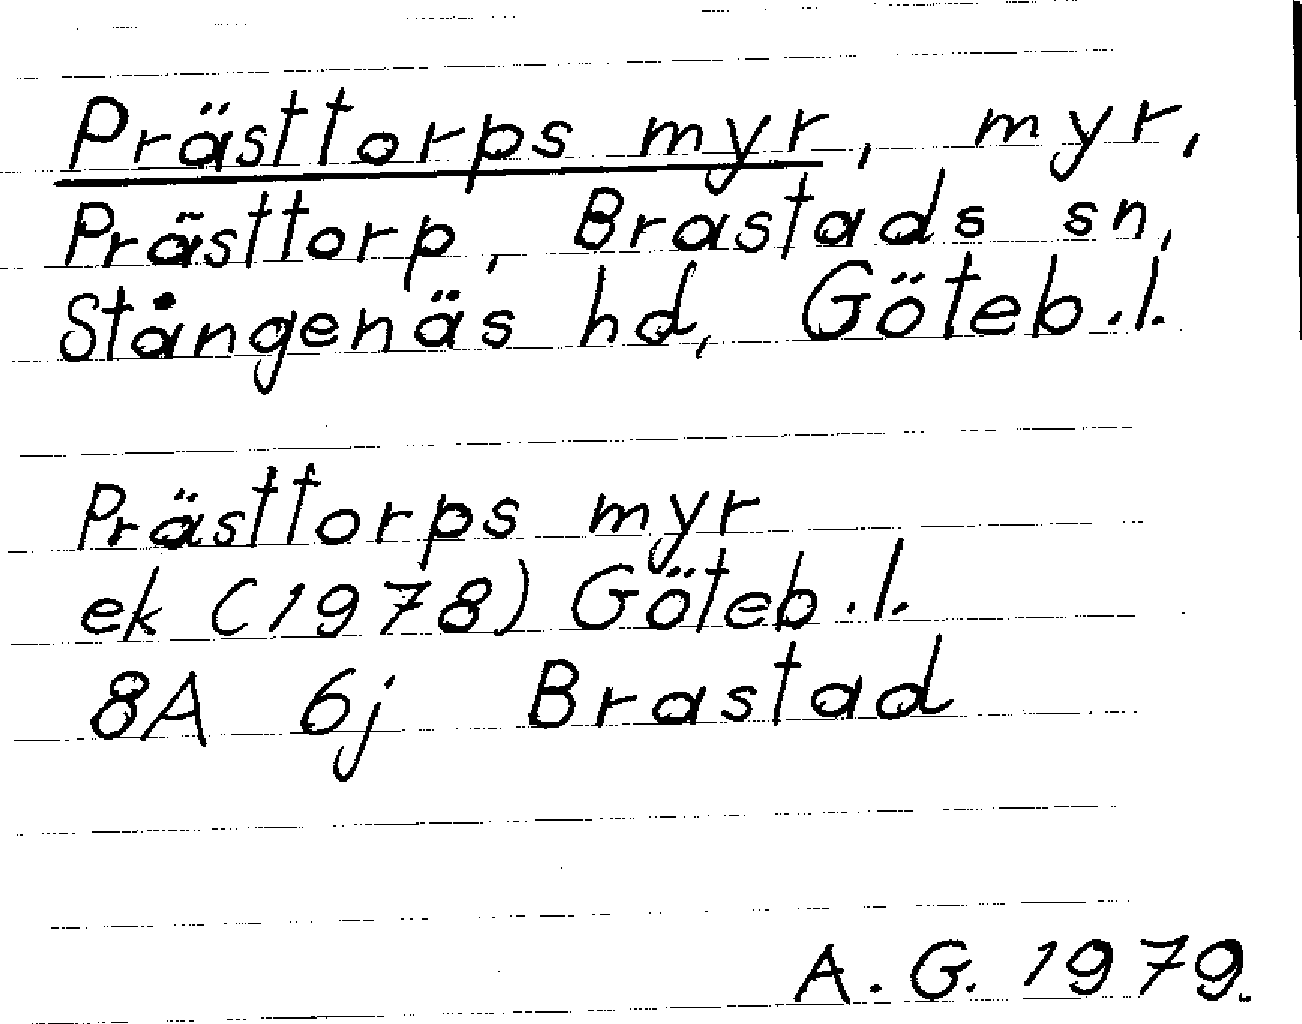 Prästtorps myr, myr,
Prästtorp, Brastads sn,
Stångenäs hd, Göteb.l.
Prästtorps myr
ek (1978) Göteb.l.
8A 6j Brastad
A.G. 1979.